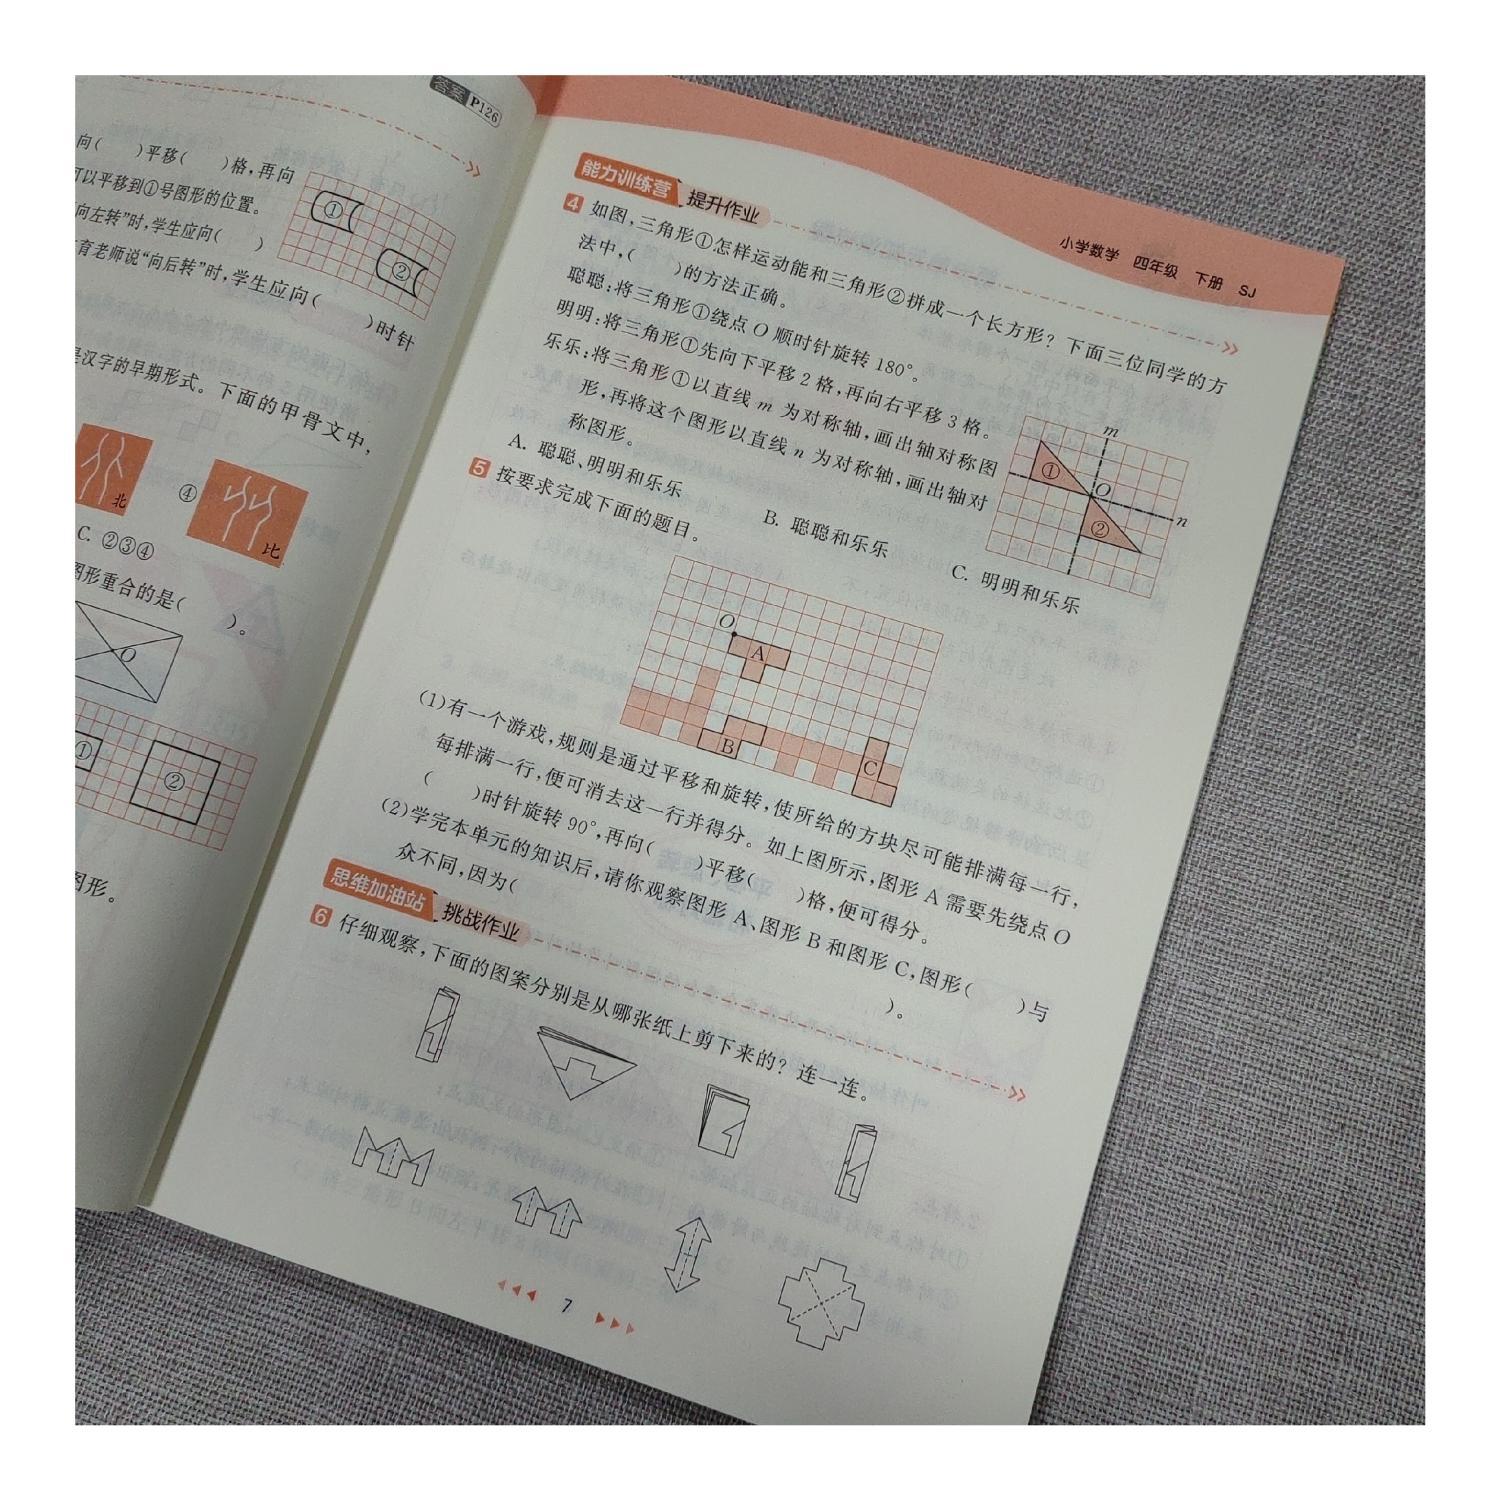 答案 P126
向(　　)平移(　　)格,再向
可以平移到①号图形的位置。
向左转”时,学生应向(　　)
育老师说“向后转”时,学生应向(　　)时针
①
②
是汉字的早期形式。下面的甲骨文中,
北
④
比
C. ②③④
图形重合的是(　　)。
O
①
②
图形。
小学数学 四年级 下册 SJ
能力训练营 提升作业
4 如图,三角形①怎样运动能和三角形②拼成一个长方形?下面三位同学的方
法中,(　　)的方法正确。
聪聪:将三角形①绕点O顺时针旋转180°。
明明:将三角形①先向下平移2格,再向右平移3格。
乐乐:将三角形①以直线m为对称轴,画出轴对称图
形,再将这个图形以直线n为对称轴,画出轴对
称图形。
A. 聪聪、明明和乐乐
B. 聪聪和乐乐
C. 明明和乐乐
m
①
O
n
②
5 按要求完成下面的题目。
O
A
B
C
(1)有一个游戏,规则是通过平移和旋转,使所给的方块尽可能排满每一行,
每排满一行,便可消去这一行并得分。如上图所示,图形A需要先绕点O
(　　)时针旋转90°,再向(　　)平移(　　)格,便可得分。
(2)学完本单元的知识后,请你观察图形A、图形B和图形C,图形(　　)与
众不同,因为(　　)。
思维加油站 挑战作业
6 仔细观察,下面的图案分别是从哪张纸上剪下来的?连一连。
7